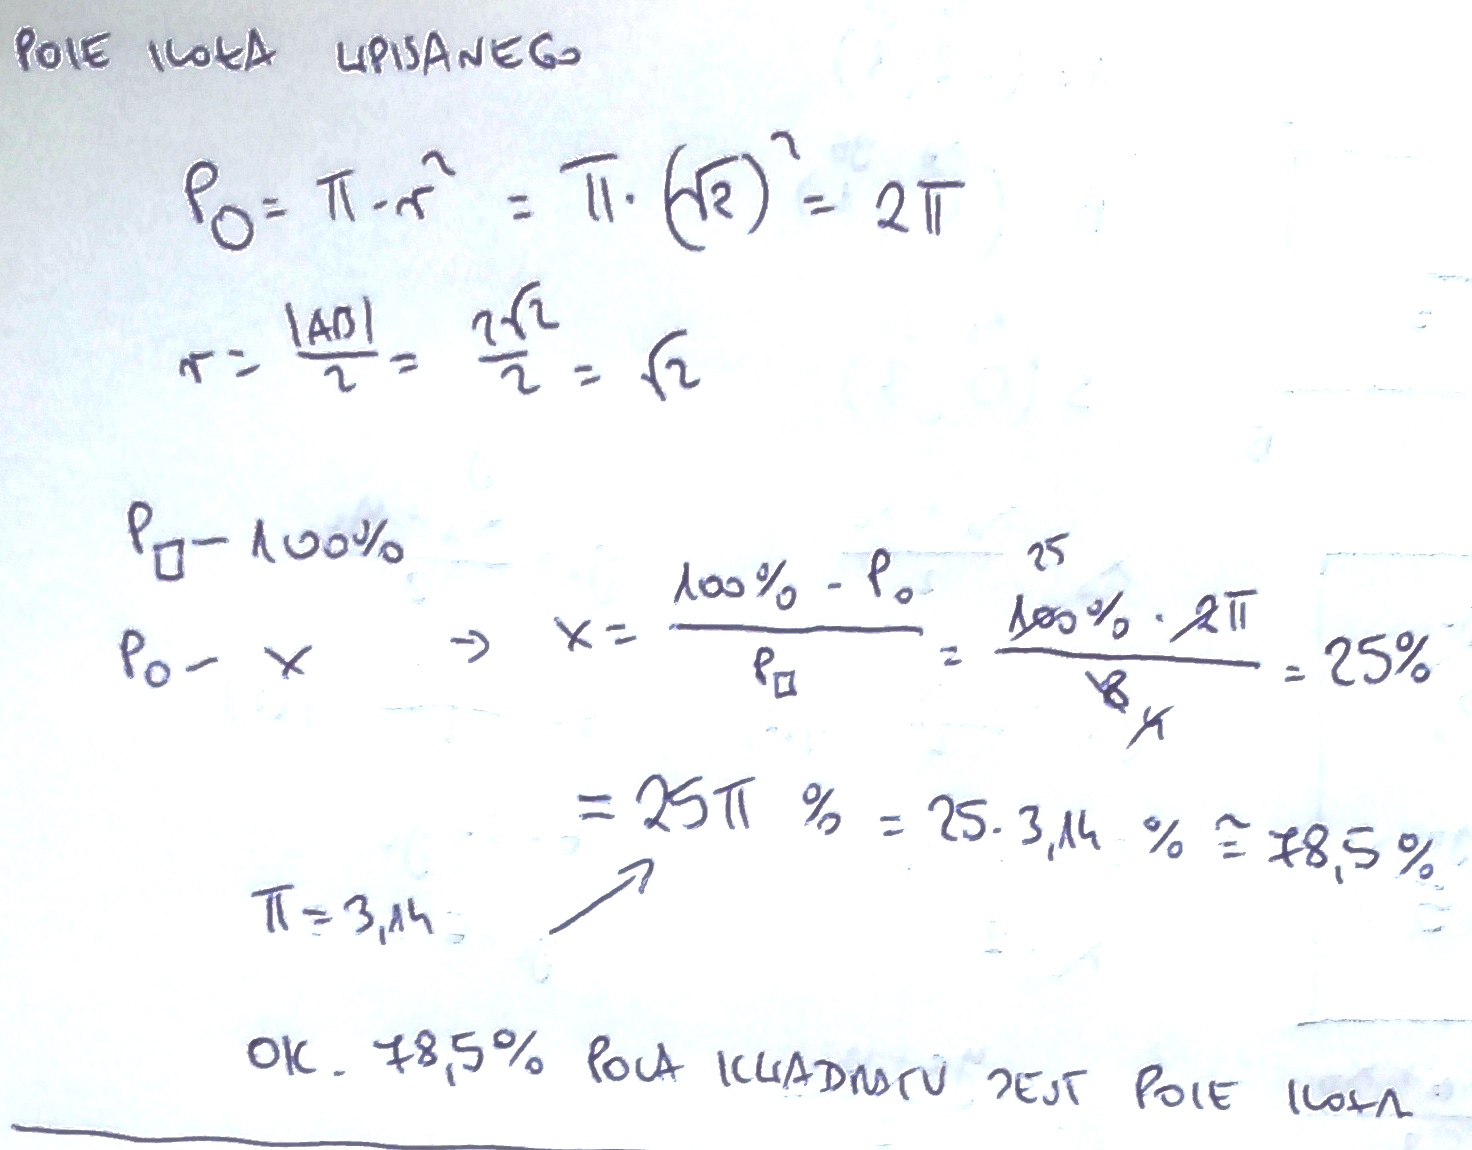 POLE KOŁA WPISANEGO
P○ = π · r² = π · (√2)² = 2π
r = |AB|/2 = 2√2/2 = √2
P□ – 100%
P○ – x → x = 100% · P○ / P□ = 100% 25 · 2π / 8 4 = 25%
= 25π % = 25 · 3,14 % ≅ 78,5%
π = 3,14
OK. 78,5% POLA KWADRATU JEST POLE KOŁA